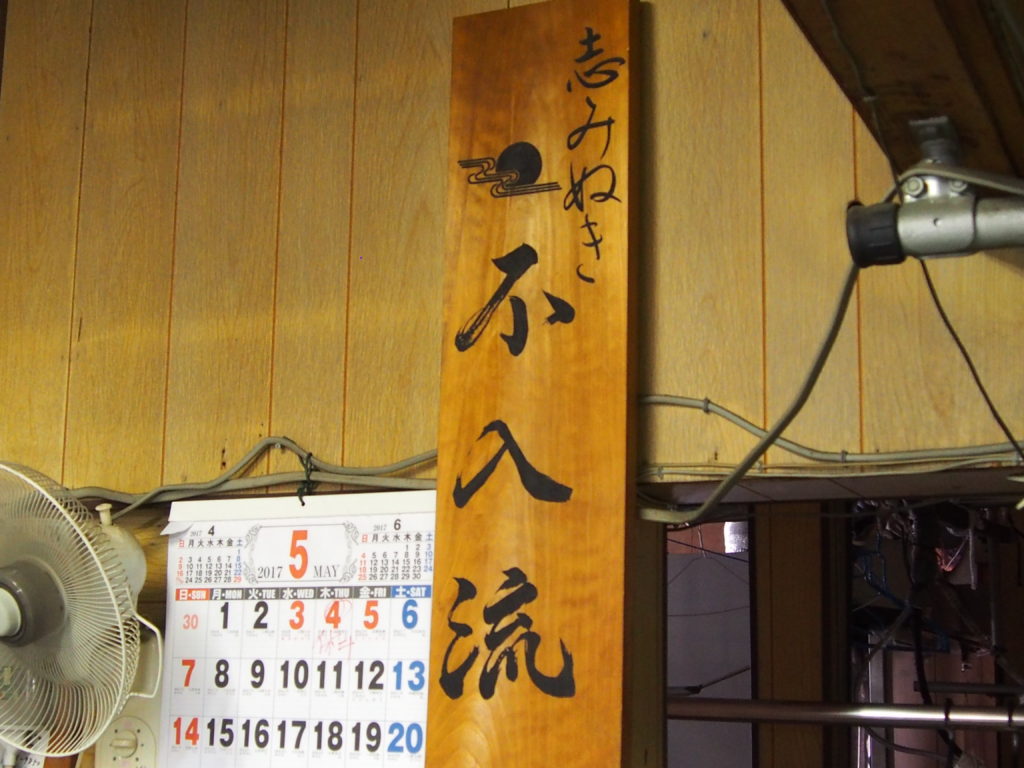 志みぬき
不入流
2017 4
日 月 火 水 木 金 土
5
2017 MAY
2017 6
日 月 火 水 木 金 土
日・SUN 月・MON 火・TUE 水・WED 木・THU 金・FRI 土・SAT
30 1 2 3 4 5 6
7 8 9 10 11 12 13
14 15 16 17 18 19 20